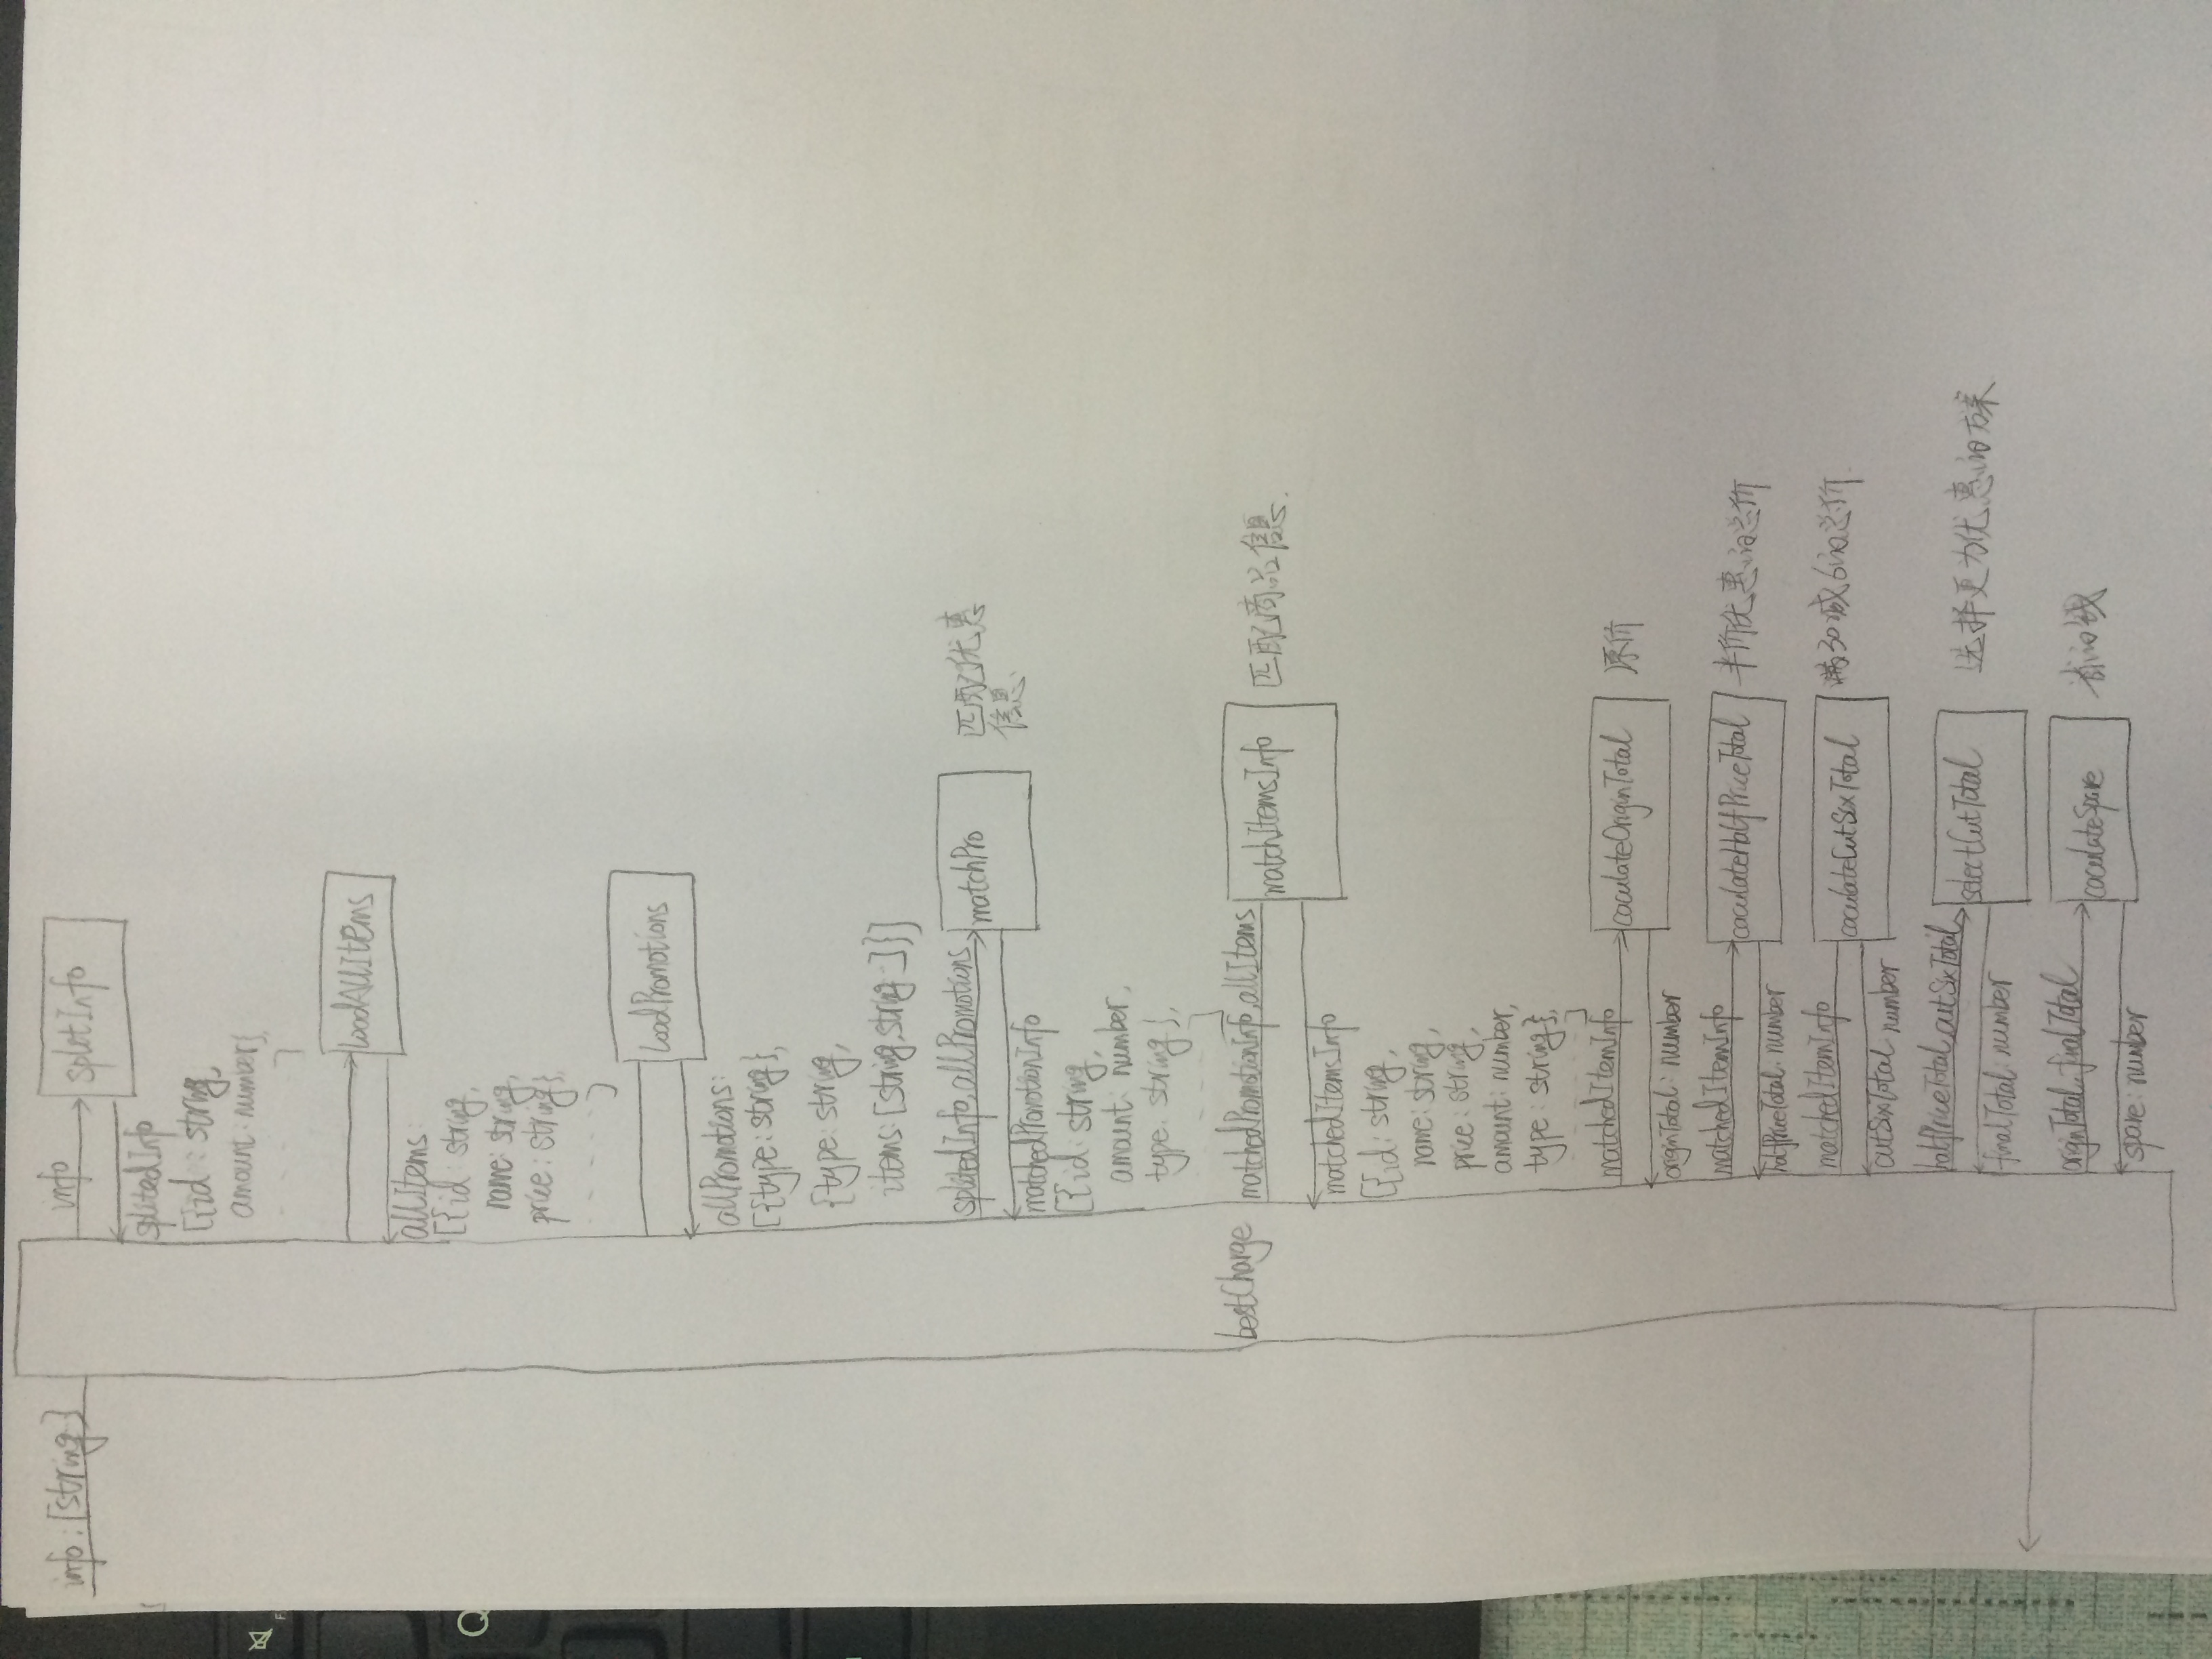 info: [string]
info
splitInfo
splitedInfo
[{id: string,
amount: number},
]
loadAllItems
allItems:
[{id: string,
name: string,
price: string},
]
loadPromotions
allPromotions:
[{type: string},
{type: string,
items: [string, string]}]
splitedInfo, allPromotions
matchPro
匹配优惠
信息
matchedPromotionInfo
[{id: string,
amount: number,
type: string},
]
bestCharge
matchedPromotionInfo, allItems
matchItemsInfo
匹配商品信息.
matchedItemsInfo
[{id: string,
name: string,
price: string,
amount: number,
type: string},
]
matchedItemInfo
caculateOriginTotal
原价
originTotal: number
matchedItemInfo
caculateHalfPriceTotal
半价优惠的总价
halfPriceTotal: number
matchedItemInfo
caculateCutSixTotal
满30减6的总价
cutSixTotal number
halfPriceTotal, cutSixTotal
selectCutTotal
选择更为优惠的方案
finalTotal: number
originTotal, finalTotal
caculateSpare
省的钱
spare: number
Q
F